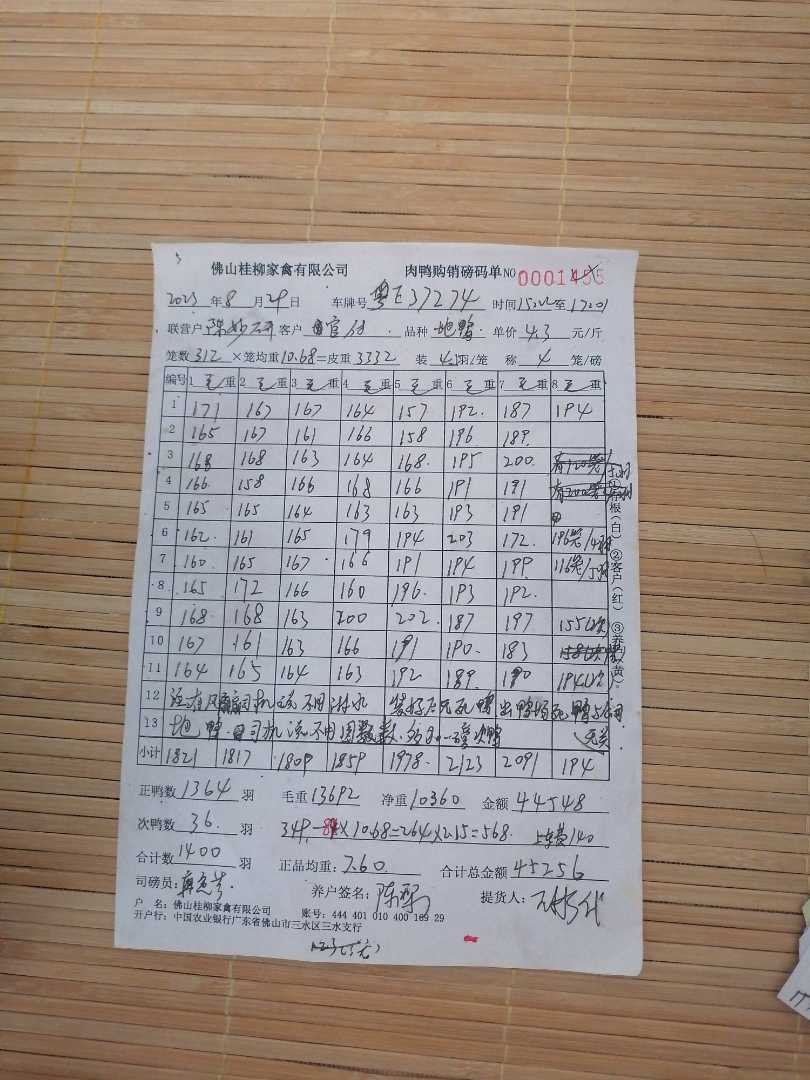 佛山桂柳家禽有限公司 肉鸭购销磅码单 NO 0001455
2023年8月29日 车牌号 粤E37274 时间 至
联营户 客户 品种 地鸭 单价 4.3 元/斤
笼数 312 ×笼均重 10.68 =皮重 3332 装 羽/笼 称 4 笼/磅
编号 1 毛重 2 毛重 3 毛重 4 毛重 5 毛重 6 毛重 7 毛重 8 毛重
1 171 167 167 164 157 192 187 194
2 165 167 161 166 158 196 189
3 168 168 163 164 168 195 200
4 166 158 166 168 166 191 191
5 165 165 164 163 163 193 191
6 162 161 165 179 194 203 172
7 160 165 167 166 191 194 199
8 165 172 166 160 196 193 192
9 168 168 163 200 202 187 197 155(次)
10 167 161 163 166 191 190 183
11 164 165 164 163 192 189 190 194(次)
12 司机说不用淋水 装好后死鸭
13 地鸭 司机说不用 次鸭 无关
小计 1821 1817 1809 1859 1978 2123 2091 194
正鸭数 1364 羽 毛重 13692 净重 10360 金额 44548
次鸭数 36 羽 349-8×10.68=264×2.15=568 上车费140
合计数 1400 羽 正品均重: 7.60 合计总金额 45256
司磅员: 养户签名: 提货人:
户 名: 佛山桂柳家禽有限公司 账号: 444 401 010 400 169 29
开户行: 中国农业银行广东省佛山市三水区三水支行
①存根(白)②客户(红)③养户(黄)